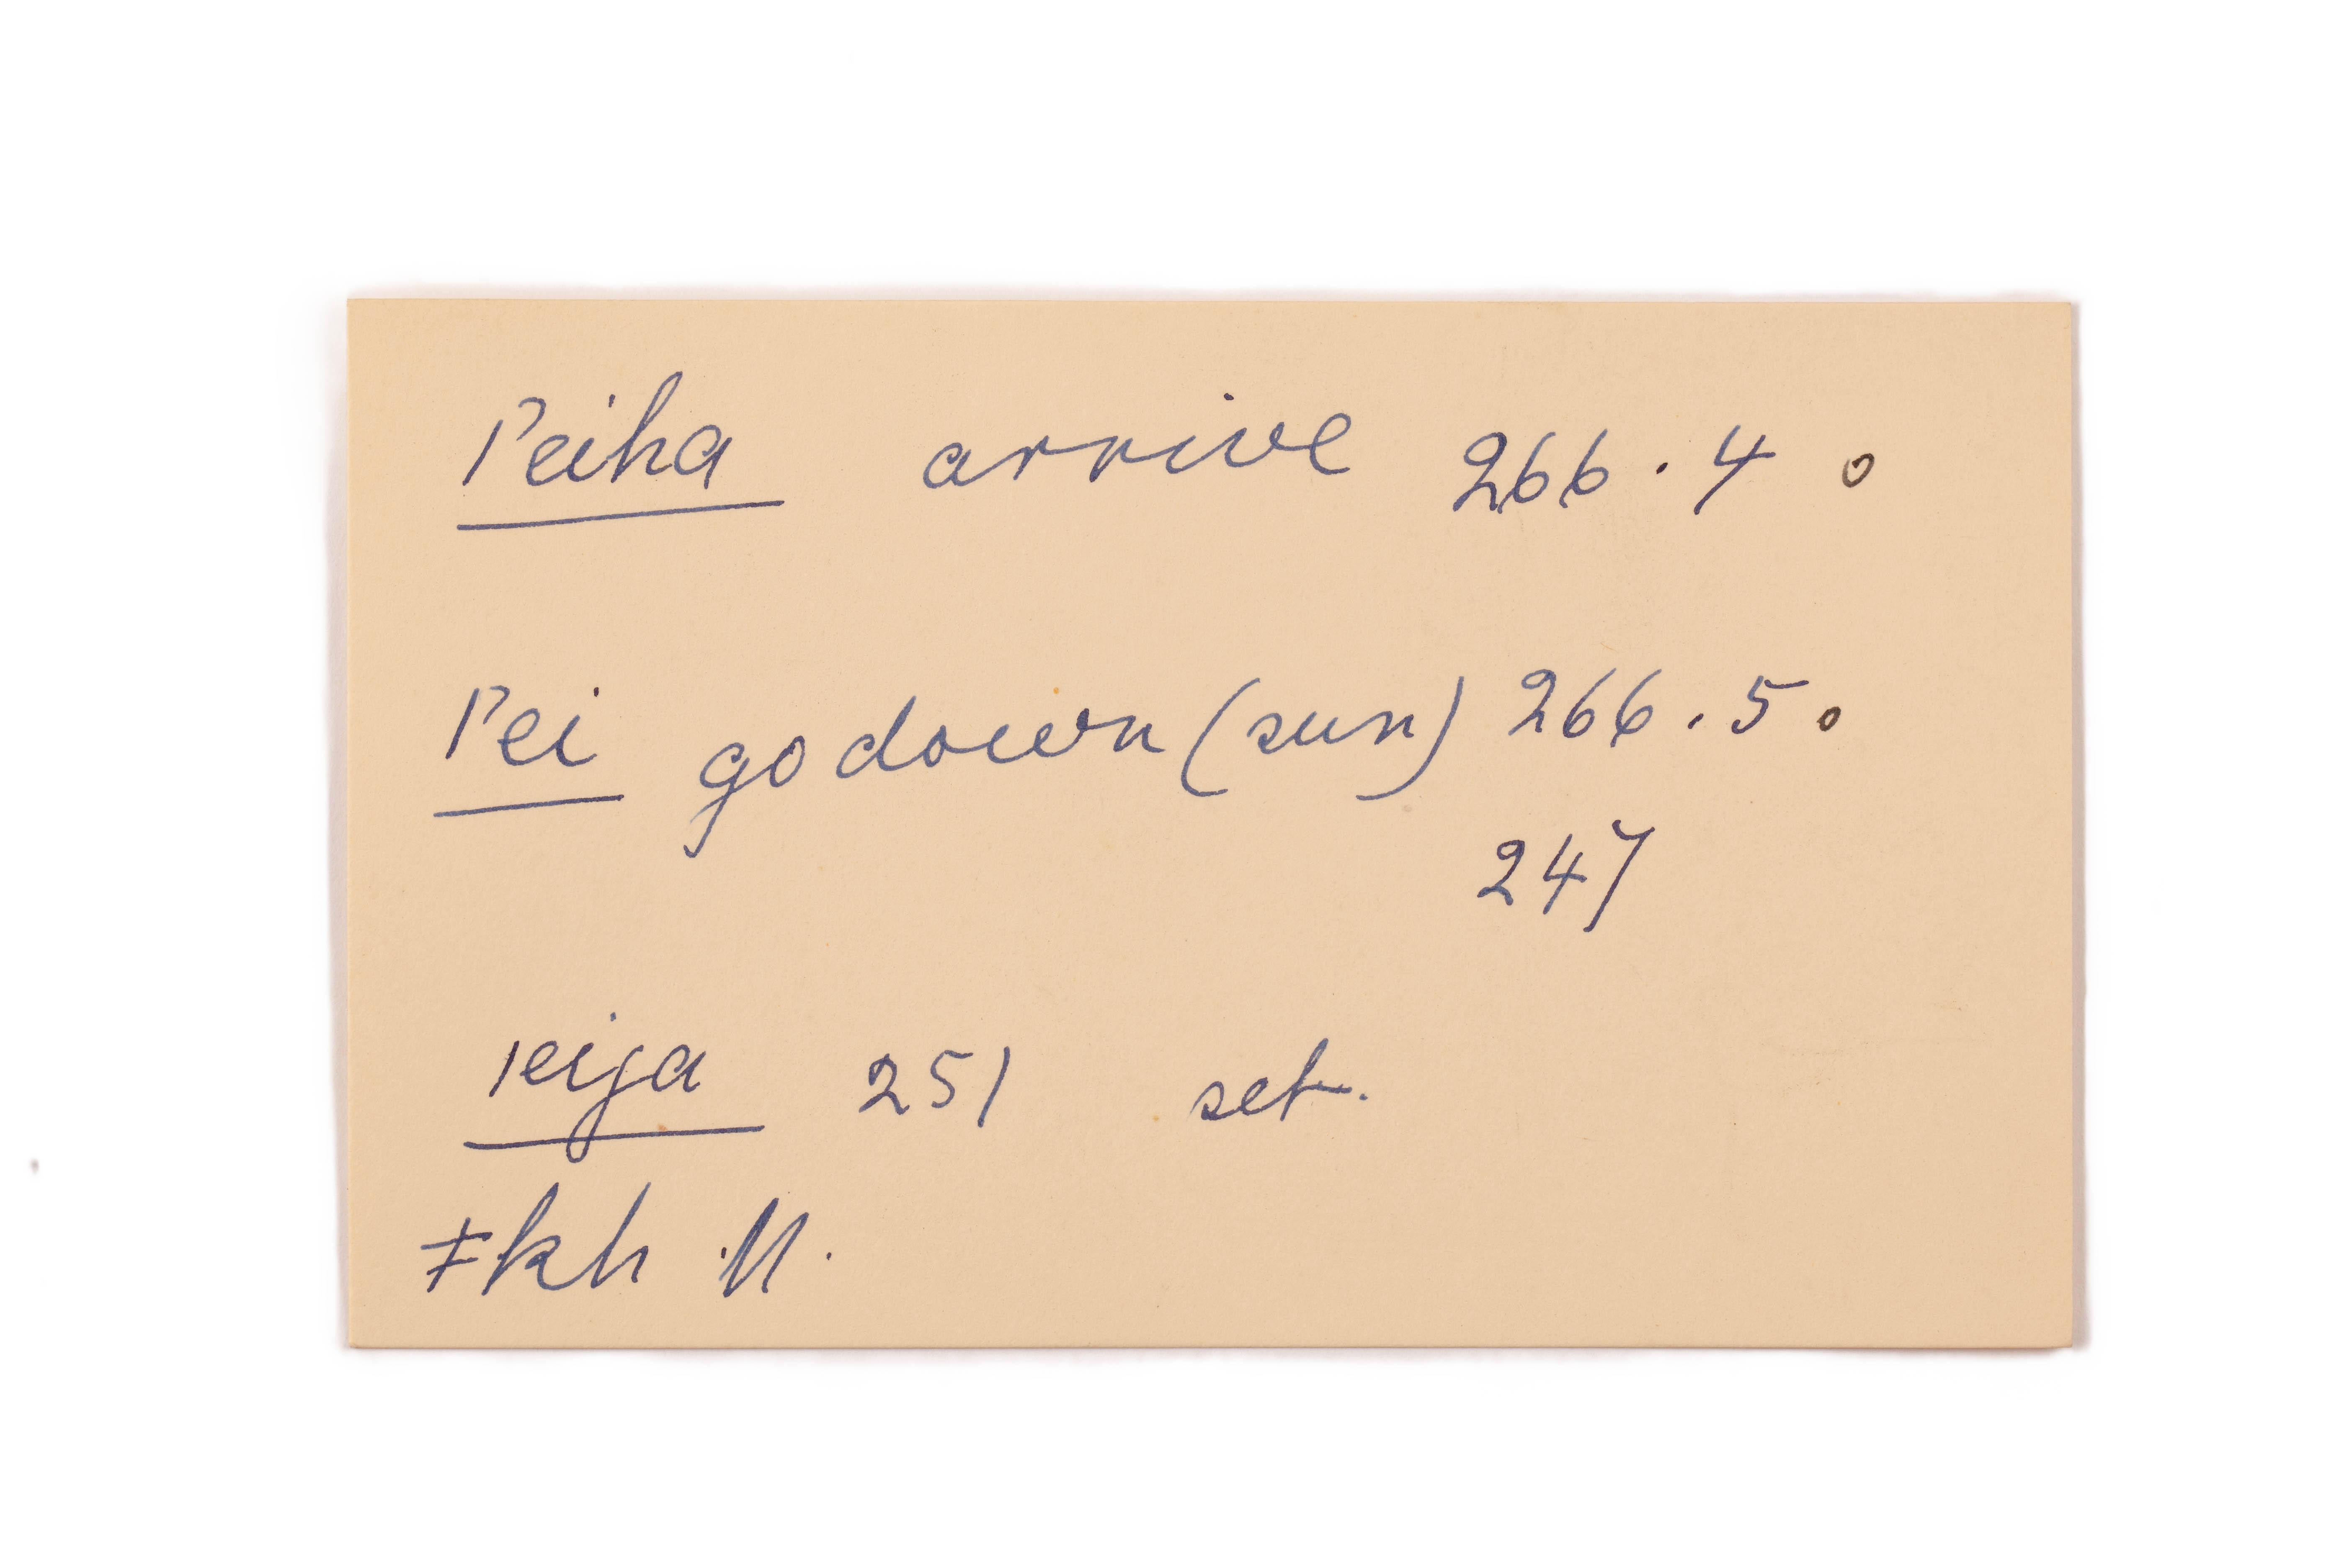 Peiha arrive 266.4 o
Pei go down (sun) 266.5 o
247
reija 251 set.
≠kh .11.